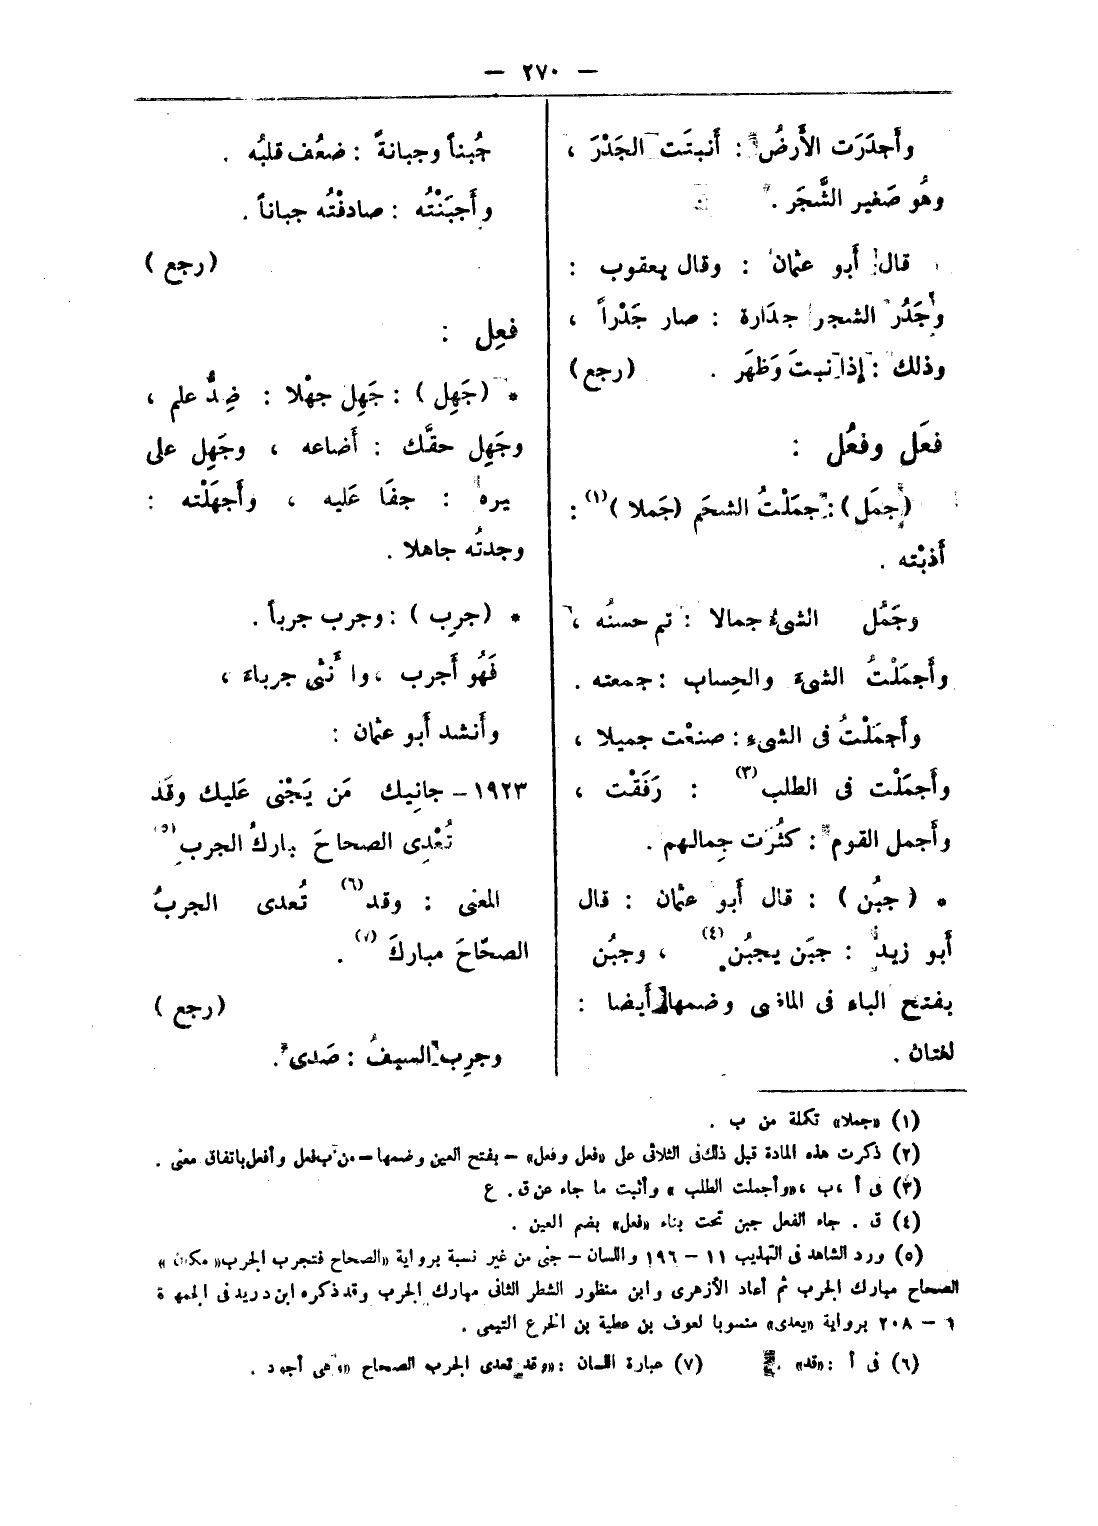 — ٢٧٠ —
وأَجدَرَت الأَرضُ : أَنبتَت الجَدْرَ ،
وهُو صَغير الشَّجَر .
قال أَبو عثمان : وقال يعقوب :
وجَدُر الشجر جدَارة : صار جَدْراً ،
وذلك : إذا نبتَ وَظهَر . (رجع)
فعَل وفعُل :
(جمَل) : جمَلْتُ الشحَم (جَملا)(١) :
أَذبْته .
وجَمُل الشىءُ جمالا : تم حسنُه ،
وأَجمَلْتُ الشىءَ والحِساب : جمعته .
وأَجمَلْتُ فى الشىءِ : صنعْت جميلا ،
وأَجمَلْت فى الطلب(٣) : رَفَقْت ،
وأَجمل القوم : كثُرَت جِمالهم .
* (جبُن) : قال أَبو عثمان : قال
أَبو زيد : جبَن يجبُن(٤) ، وجبُن
بفتح الباء فى الماضى وضمها أَيضا :
لغتان .
جُبناً وجبانةً : ضعُف قلبُه .
وأَجبَنْتُه : صادفْتُه جباناً .
(رجع)
فعِل :
* (جَهِل) : جَهِل جهْلا : ضِدُّ علم ،
وجَهِل حقَّك : أَضاعه ، وجَهِل على
يره : جفَا عَليه ، وأَجهَلْته :
وجدتُه جاهلا .
* (جرِب) : وجرب جرباً .
فَهُو أَجرب ، والأُنثى جرباء ،
وأَنشد أَبو عثمان :
١٩٢٣ – جانِيك مَن يَجْنى عَليك وقَد
تُعْدِى الصحاحَ مباركُ الجرب(٥)
المعنى : وقد(٦) تُعدى الجربُ
الصحّاحَ مباركَ(٧) .
(رجع)
وجرِب السيفُ : صَدىء .
(١) «جملا» تكملة من ب .
(٢) ذكرت هذه المادة قبل ذلك فى الثلاثى على «فعل وفعل» – بفتح العين وضمها – من باب فعل وأفعل باتفاق معنى .
(٣) فى أ ، ب ، «وأجملت الطلب» وأثبت ما جاء عن ق . ع
(٤) ق . جاء الفعل جبن تحت بناء «فعل» بضم العين .
(٥) ورد الشاهد فى التهذيب ١١ – ١٩٦ واللسان – جنى من غير نسبة برواية «الصحاح فتجرب الجرب» مكان «
الصحاح مبارك الجرب ثم أعاد الأزهرى وابن منظور الشطر الثانى مبارك الجرب وقد ذكره ابن دريد فى الجمهرة
٦ – ٢٠٨ برواية «يعدى» منسوبا لعوف بن عطية بن الخرع التيمى .
(٦) فى أ : «قد» . (٧) عبارة اللسان : «وقد تعدى الجرب الصحاح» وهى أجود .